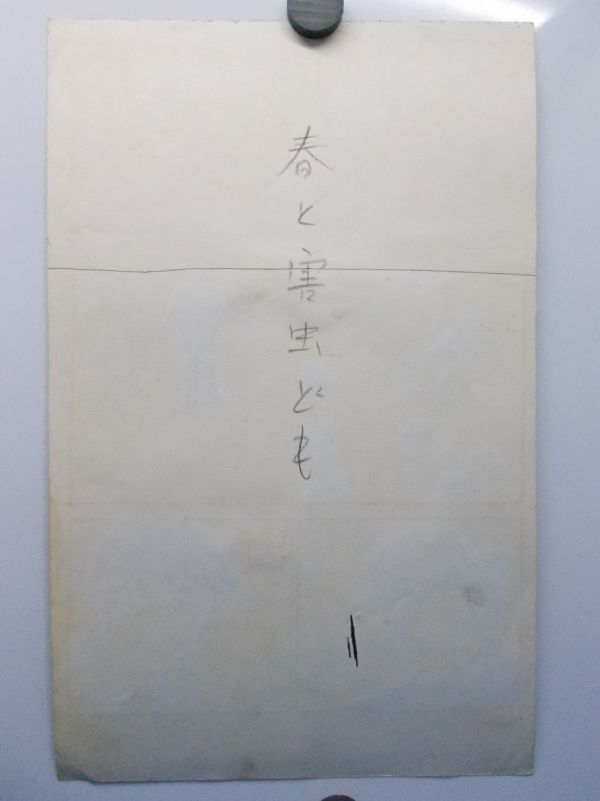 春と害虫ども